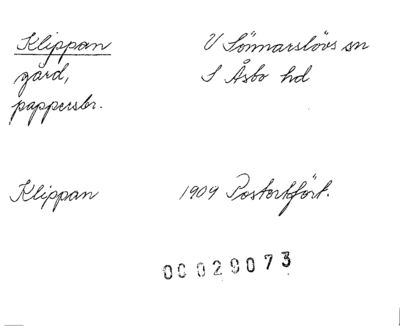 Klippan V Sönnarslövs sn
gård, S Åsbo hd
pappersbr.
Klippan 1909 Postortfört.
00029073